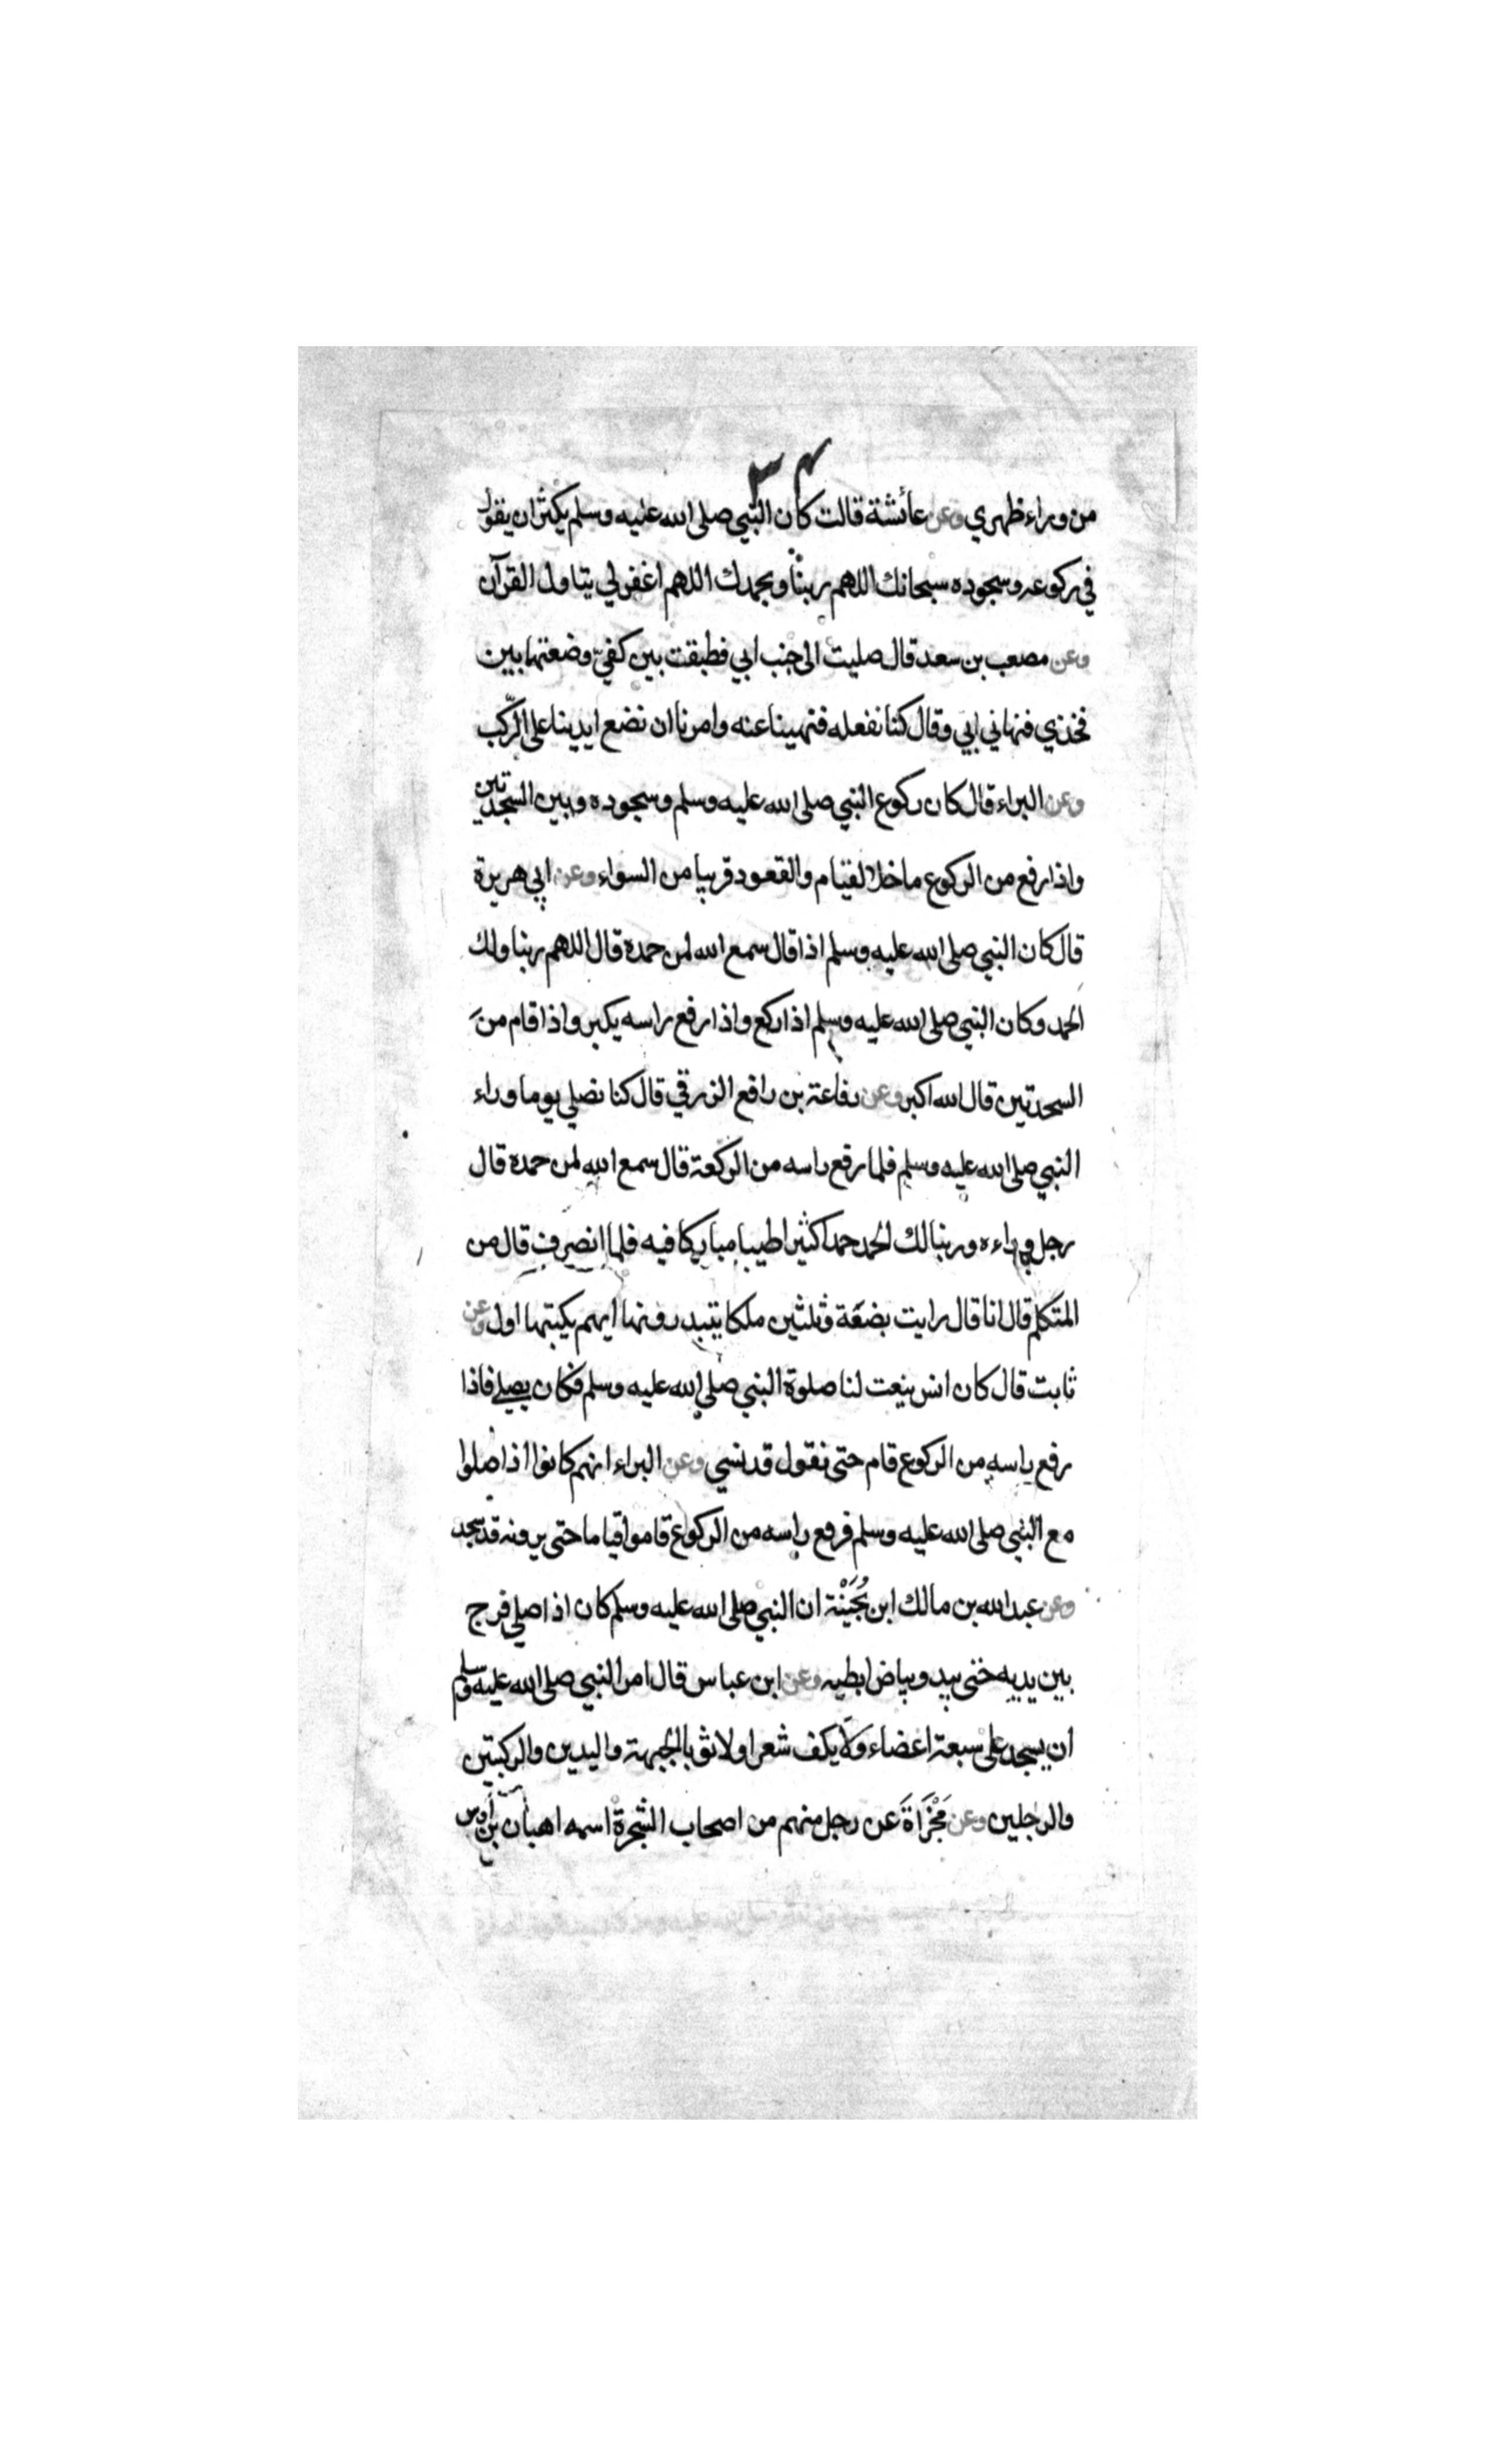 ٣٤
من وراء ظهري وعن عائشة قالت كان النبي صلى الله عليه وسلم يكثر ان يقول
في ركوعه وسجوده سبحانك اللهم ربنا وبحمدك اللهم اغفر لي يتاول القرآن
وعن مصعب بن سعد قال صليت الى جنب ابي فطبقت بين كفيّ وضعتها بين
فخذي فنهاني ابي وقال كنا نفعله فنهينا عنه وامرنا ان نضع ايدينا على الركب
وعن البراء قال كان ركوع النبي صلى الله عليه وسلم وسجوده وبين السجدتين
واذا رفع من الركوع ماخلا القيام والقعود قريبا من السواء وعن ابي هريرة
قال كان النبي صلى الله عليه وسلم اذا قال سمع الله لمن حمده قال اللهم ربنا ولك
الحمد وكان النبي صلى الله عليه وسلم اذا ركع واذا رفع راسه يكبر واذا قام من
السجدتين قال الله اكبر وعن رفاعة بن رافع الزرقي قال كنا نصلي يوما وراء
النبي صلى الله عليه وسلم فلما رفع راسه من الركعة قال سمع الله لمن حمده قال
رجل وراءه ربنا لك الحمد حمدا كثيرا طيبا مباركا فيه فلما انصرف قال من
المتكلم قال انا قال رايت بضعة وثلثين ملكا يتبدرونها ايهم يكتبها اول وعن
ثابت قال كان انس ينعت لنا صلوة النبي صلى الله عليه وسلم فكان يصلي فاذا
رفع راسه من الركوع قام حتى نقول قد نسي وعن البراء انهم كانوا اذا صلوا
مع النبي صلى الله عليه وسلم فرفع راسه من الركوع قاموا قياما حتى يرونه قد سجد
وعن عبد الله بن مالك ابن بُحَيْنَة ان النبي صلى الله عليه وسلم كان اذا صلى فرج
بين يديه حتى يبدو بياض ابطيه وعن ابن عباس قال امر النبي صلى الله عليه وسلم
ان يسجد على سبعة اعضاء وَلَا يكف شعرا ولا ثوبا الجبهة واليدين والركبتين
والرجلين وعن مَجْزَاةَ عن رجل منهم من اصحاب الشجرة اسمه اهبان بن اوس